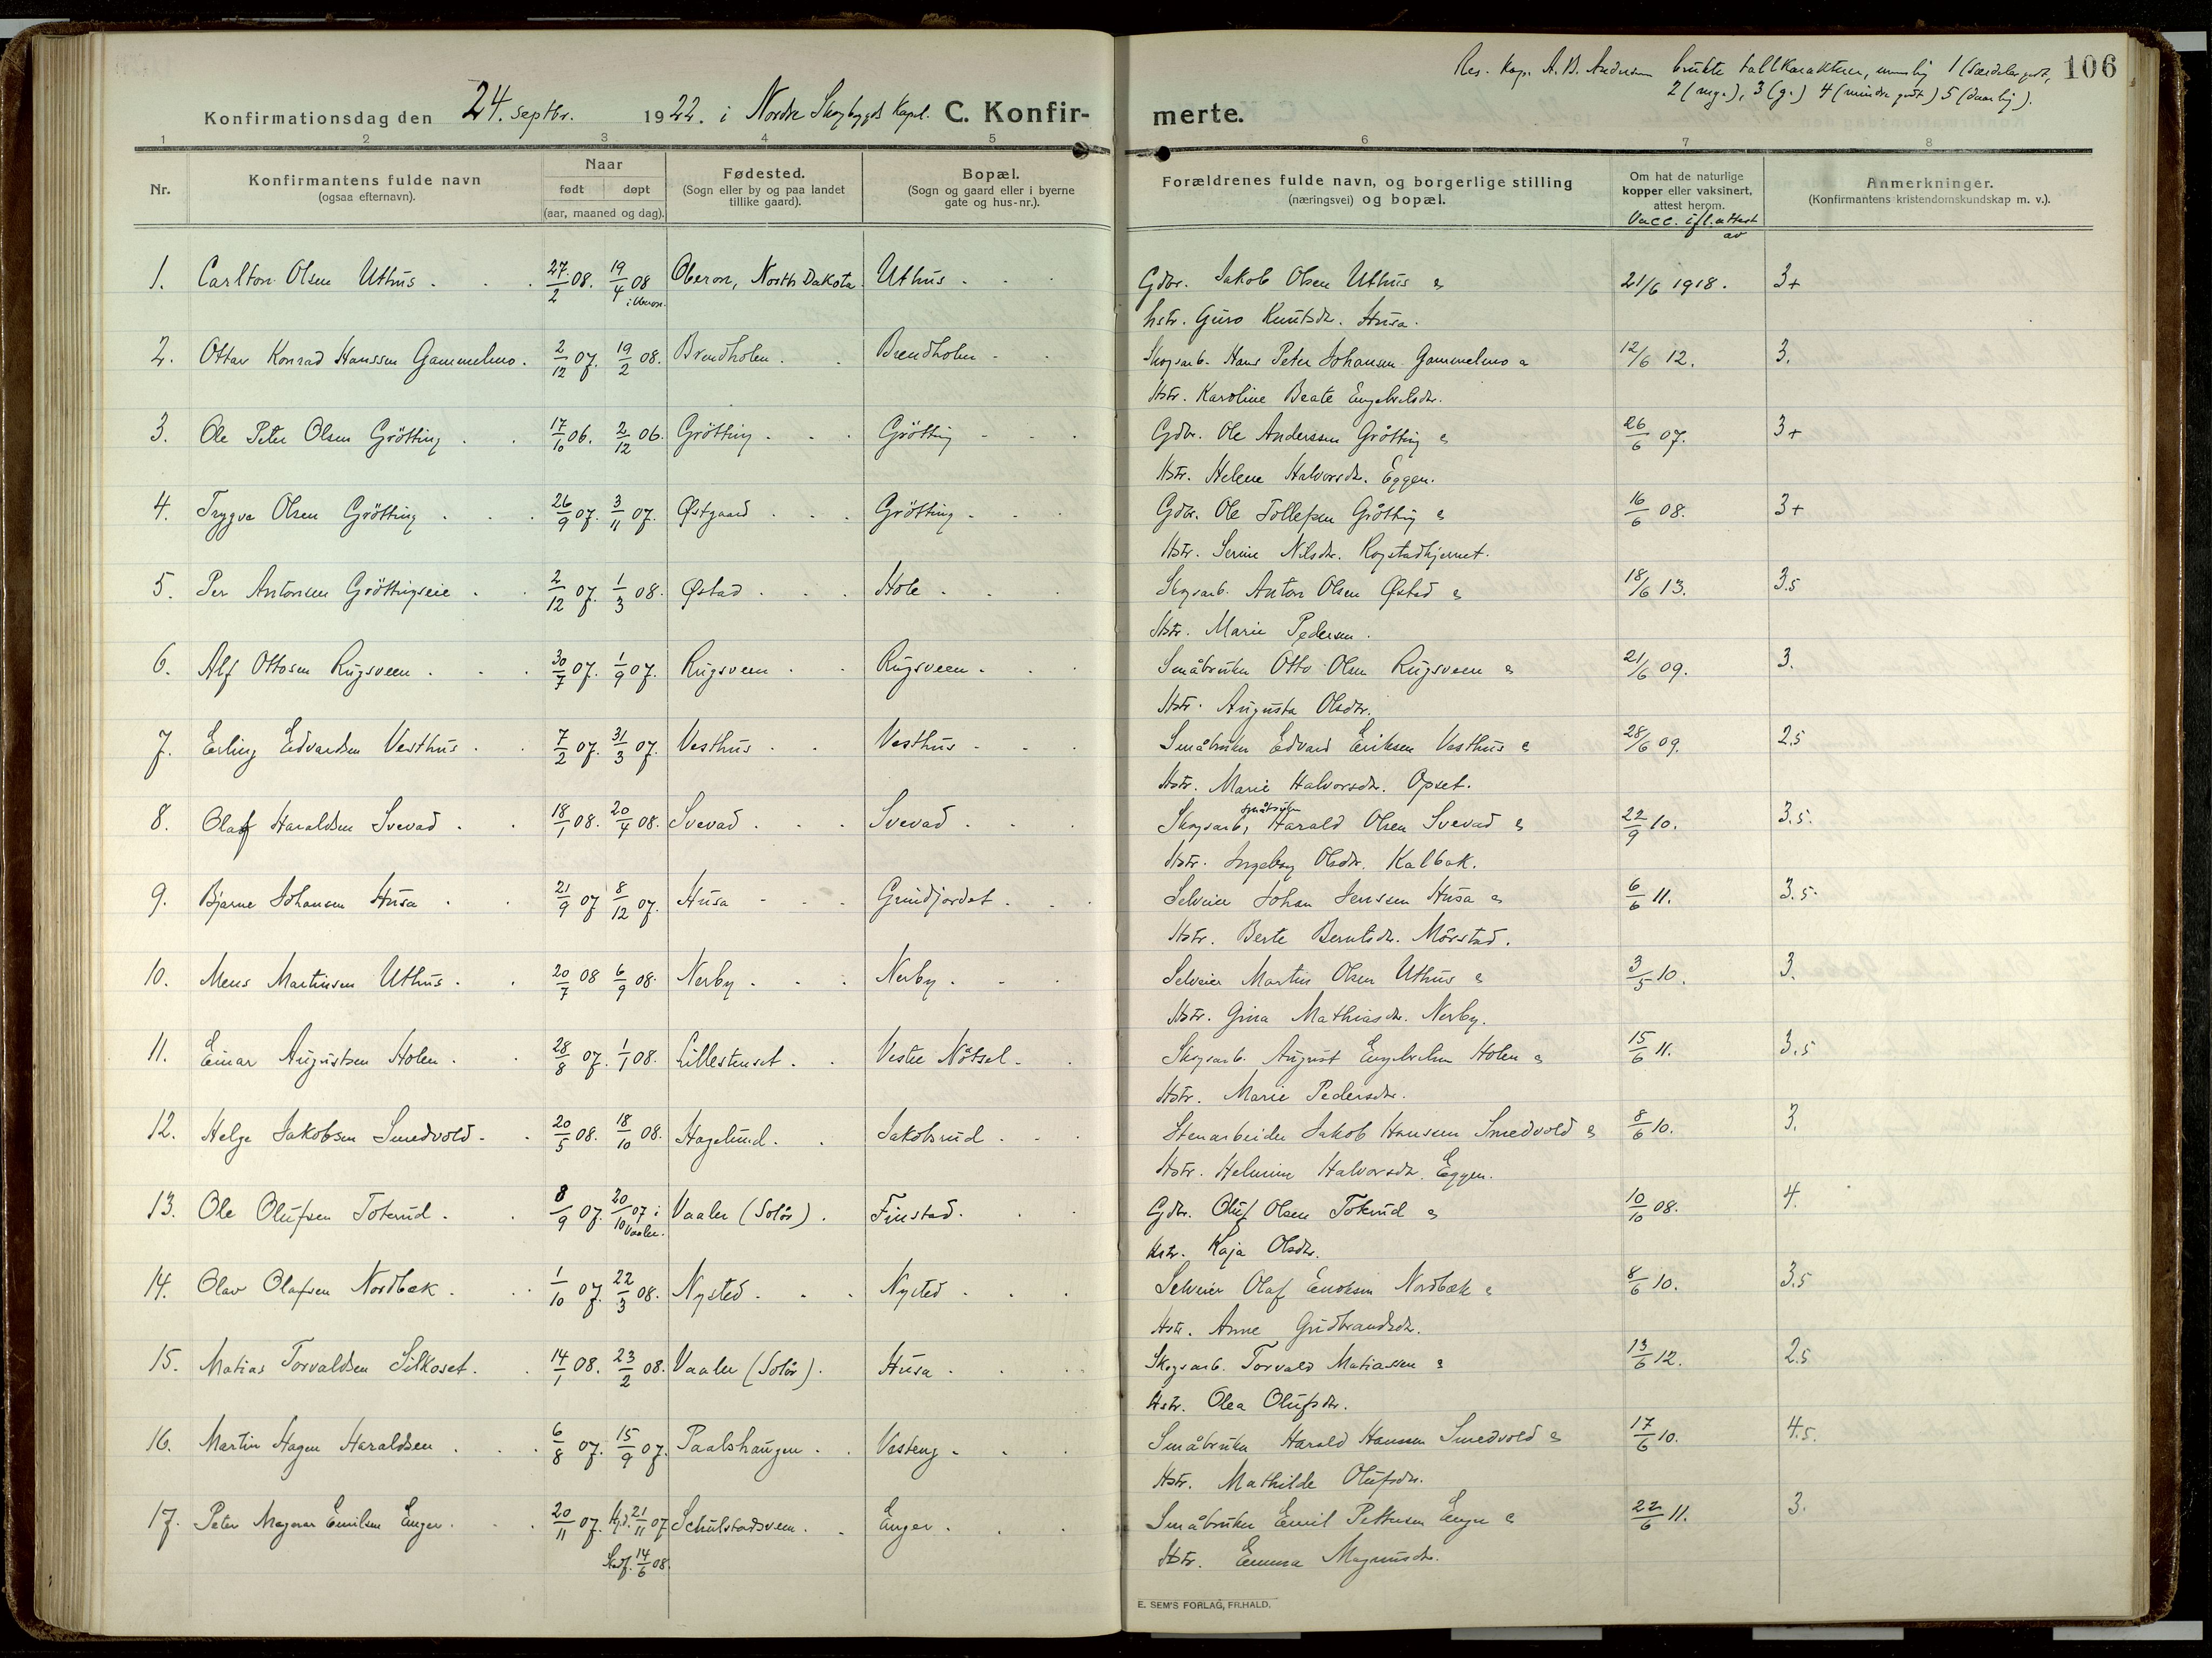 Res. kap. A. B. Andersen brukte tallkarakterer, nemlig 1 (særdeles godt,
2 (mg.), 3 (g.) 4 (mindre godt) 5 (daarlig).
106
Konfirmationsdag den 24. septbr. 1922. i Nordre Skogbygds Kapel. C. Konfir-merte.
1 2 3 4 5 6 7 8
Nr.
Konfirmantens fulde navn
(ogsaa efternavn).
Naar
født døpt
(aar, maaned og dag).
Fødested.
(Sogn eller by og paa landet
tillike gaard).
Bopæl.
(Sogn og gaard eller i byerne
gate og hus-nr.).
Forældrenes fulde navn, og borgerlige stilling
(næringsvei) og bopæl.
Om hat de naturlige
kopper eller vaksinert,
attest herom.
Vacc. ifl. attest
av
Anmerkninger.
(Konfirmantens kristendomskundskap m. v.).
1. Carlton Olsen Uthus 27/2 08. 19/4 08 Oberon, North Dakota Uthus Gdbr. Jakob Olsen Uthus & 21/6 1918. 3+
i Oberon.
hstr. Guro Knutsdr. Husa.
2. Ottar Konrad Hanssen Gammelmo. 2/12 07. 19/2 08. Brendholen Brendholen Skogsarb. Hans Peter Johansen Gammelmo & 12/6 12. 3.
Hstr. Karoline Beate Engebretsdr.
3. Ole Peter Olsen Grötting 17/10 06. 2/12 06. Grötting Grötting Gdbr. Ole Anderssen Grötting & 26/6 07. 3+
Hstr. Helene Halvorsdr. Eggen.
4. Trygve Olsen Grötting 26/9 07. 3/11 07. Østgaard Grötting Gdbr. Ole Tollefsen Grötting & 16/6 08. 3+
Hstr. Serine Nilsdr. Rogstadkjernet.
5. Per Antonsen Gröttingseie 2/12 07. 1/3 08. Østad Hole Skogsarb. Anton Olsen Østad & 18/6 13. 3.5
Hstr. Marie Pedersen.
6. Alf Ottosen Rugsveen 30/7 07. 1/9 07. Rugsveen Rugsveen Småbruker Otto Olsen Rugsveen & 21/6 09. 3.
Hstr. Augusta Olsdtr.
7. Erling Edvardsen Vesthus 7/2 07. 31/3 07. Vesthus Vesthus Småbruker Edvard Eriksen Vesthus & 28/6 09. 2.5
Hstr. Marie Halvorsdr. Opset.
småbruker
8. Olaf Haraldsen Svevad 18/1 08. 20/4 08. Svevad Svevad Skogsarb, Harald Olsen Svevad & 22/9 10. 3.5.
Hstr. Ingeborg Olsdr. Kalbak.
9. Bjarne Johansen Husa 21/9 07 8/12 07. Husa Grindjordet Selveier Johan Jenssen Husa & 6/6 11. 3.5
Hstr. Berte Berntsdr. Mörstad.
10. Mens Martinsen Uthus 20/7 08 6/9 08. Nerby Nerby Selveier Martin Olsen Uthus & 3/5 10. 3.
Hstr. Gina Mathiasdr. Nerby.
11. Einar Augustsen Holen 28/8 07. 1/1 08. Lillestenset Vestre Nötsel Skogsarb. August Engebretsen Holen & 15/6 11. 3.5
Hstr. Marie Pedersdr.
12. Helge Jakobsen Smedvold 20/5 08. 18/10 08. Hagelund Jakobsrud Stenarbeider Jakob Hansen Smedvold & 8/6 10. 3.
Hstr. Helmine Halvorsdr. Eggen.
13. Ole Olufsen Toterud 8/9 07. 20/10 07 i Vaaler. Vaaler (Solör) Finstad Gdbr. Oluf Olsen Toterud & 10/10 08. 4.
Hstr. Kaja Olsdr.
14. Olav Olafsen Nordbæk 1/10 07. 22/3 08. Nysted Nysted Selveier Olaf Enoksen Nordbæk & 8/6 10. 3.5
Hstr. Anne Gudbrandsdr.
15. Matias Torvaldsen Silkoset 14/1 08. 23/2 08. Vaaler (Solör) Husa Skogsarb. Torvald Matiassen & 13/6 12. 2.5
Hstr. Olea Olufsdr.
16. Martin Hagen Haraldsen 6/8 07. 15/9 07. Paalshaugen Vesteng Småbruker Harald Hanssen Smedvold & 17/6 10. 4.5.
Hstr. Mathilde Olufsdr.
17. Peter Magnar Emilsen Enger 20/11 07. Hjd. 21/11 07 Schulstadsveen Enger Småbruker Emil Pettersen Enger & 22/6 11. 3.
Stadf. 14/6 08.
Hstr. Emma Magnusdr.
E. SEM'S FORLAG, FR.HALD.